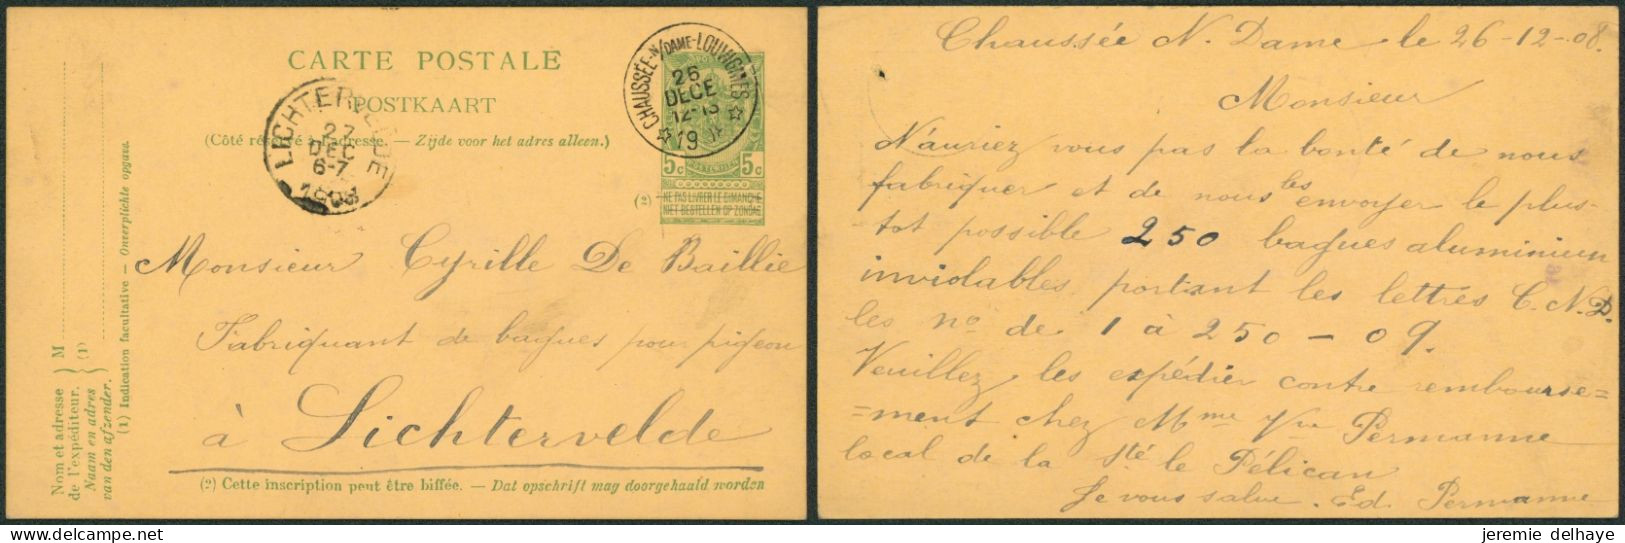 CARTE POSTALE
POSTKAART
(Côté réservé à l'adresse. — Zijde voor het adres alleen.)
CHAUSSÉE-N/DAME-LOUVIGNIES
26
DECE
12-13
19
LICHTERVELDE
27
DEC
6-7
1908
5c 5c
(2)
NE PAS LIVRER LE DIMANCHE
NIET BESTELLEN OP ZONDAG
Monsieur Cyrille De Baillie
Fabriquant de bagues pour pigeon
à Lichtervelde
(2) Cette inscription peut être biffée. — Dat opschrift mag doorgehaald worden
Nom et adresse
de l'expéditeur.
Naam en adres
van den afzender.
M
(1)
(1) Indication facultative — Onverplichte opgave.
Chaussée N. Dame le 26-12-08.
Monsieur
N'auriez vous pas la bonté de nous
fabriquer et de nous les envoyer le plus-
tot possible 250 bagues aluminium
inviolables portant les lettres C.N.D.
les nos de 1 à 250 — 09.
Veuillez les expédier contre rembourse=
=ment chez Mme Vve Permanne
local de la Sté le Pélican
Je vous salue. Ed. Permanne
jeremie delhaye